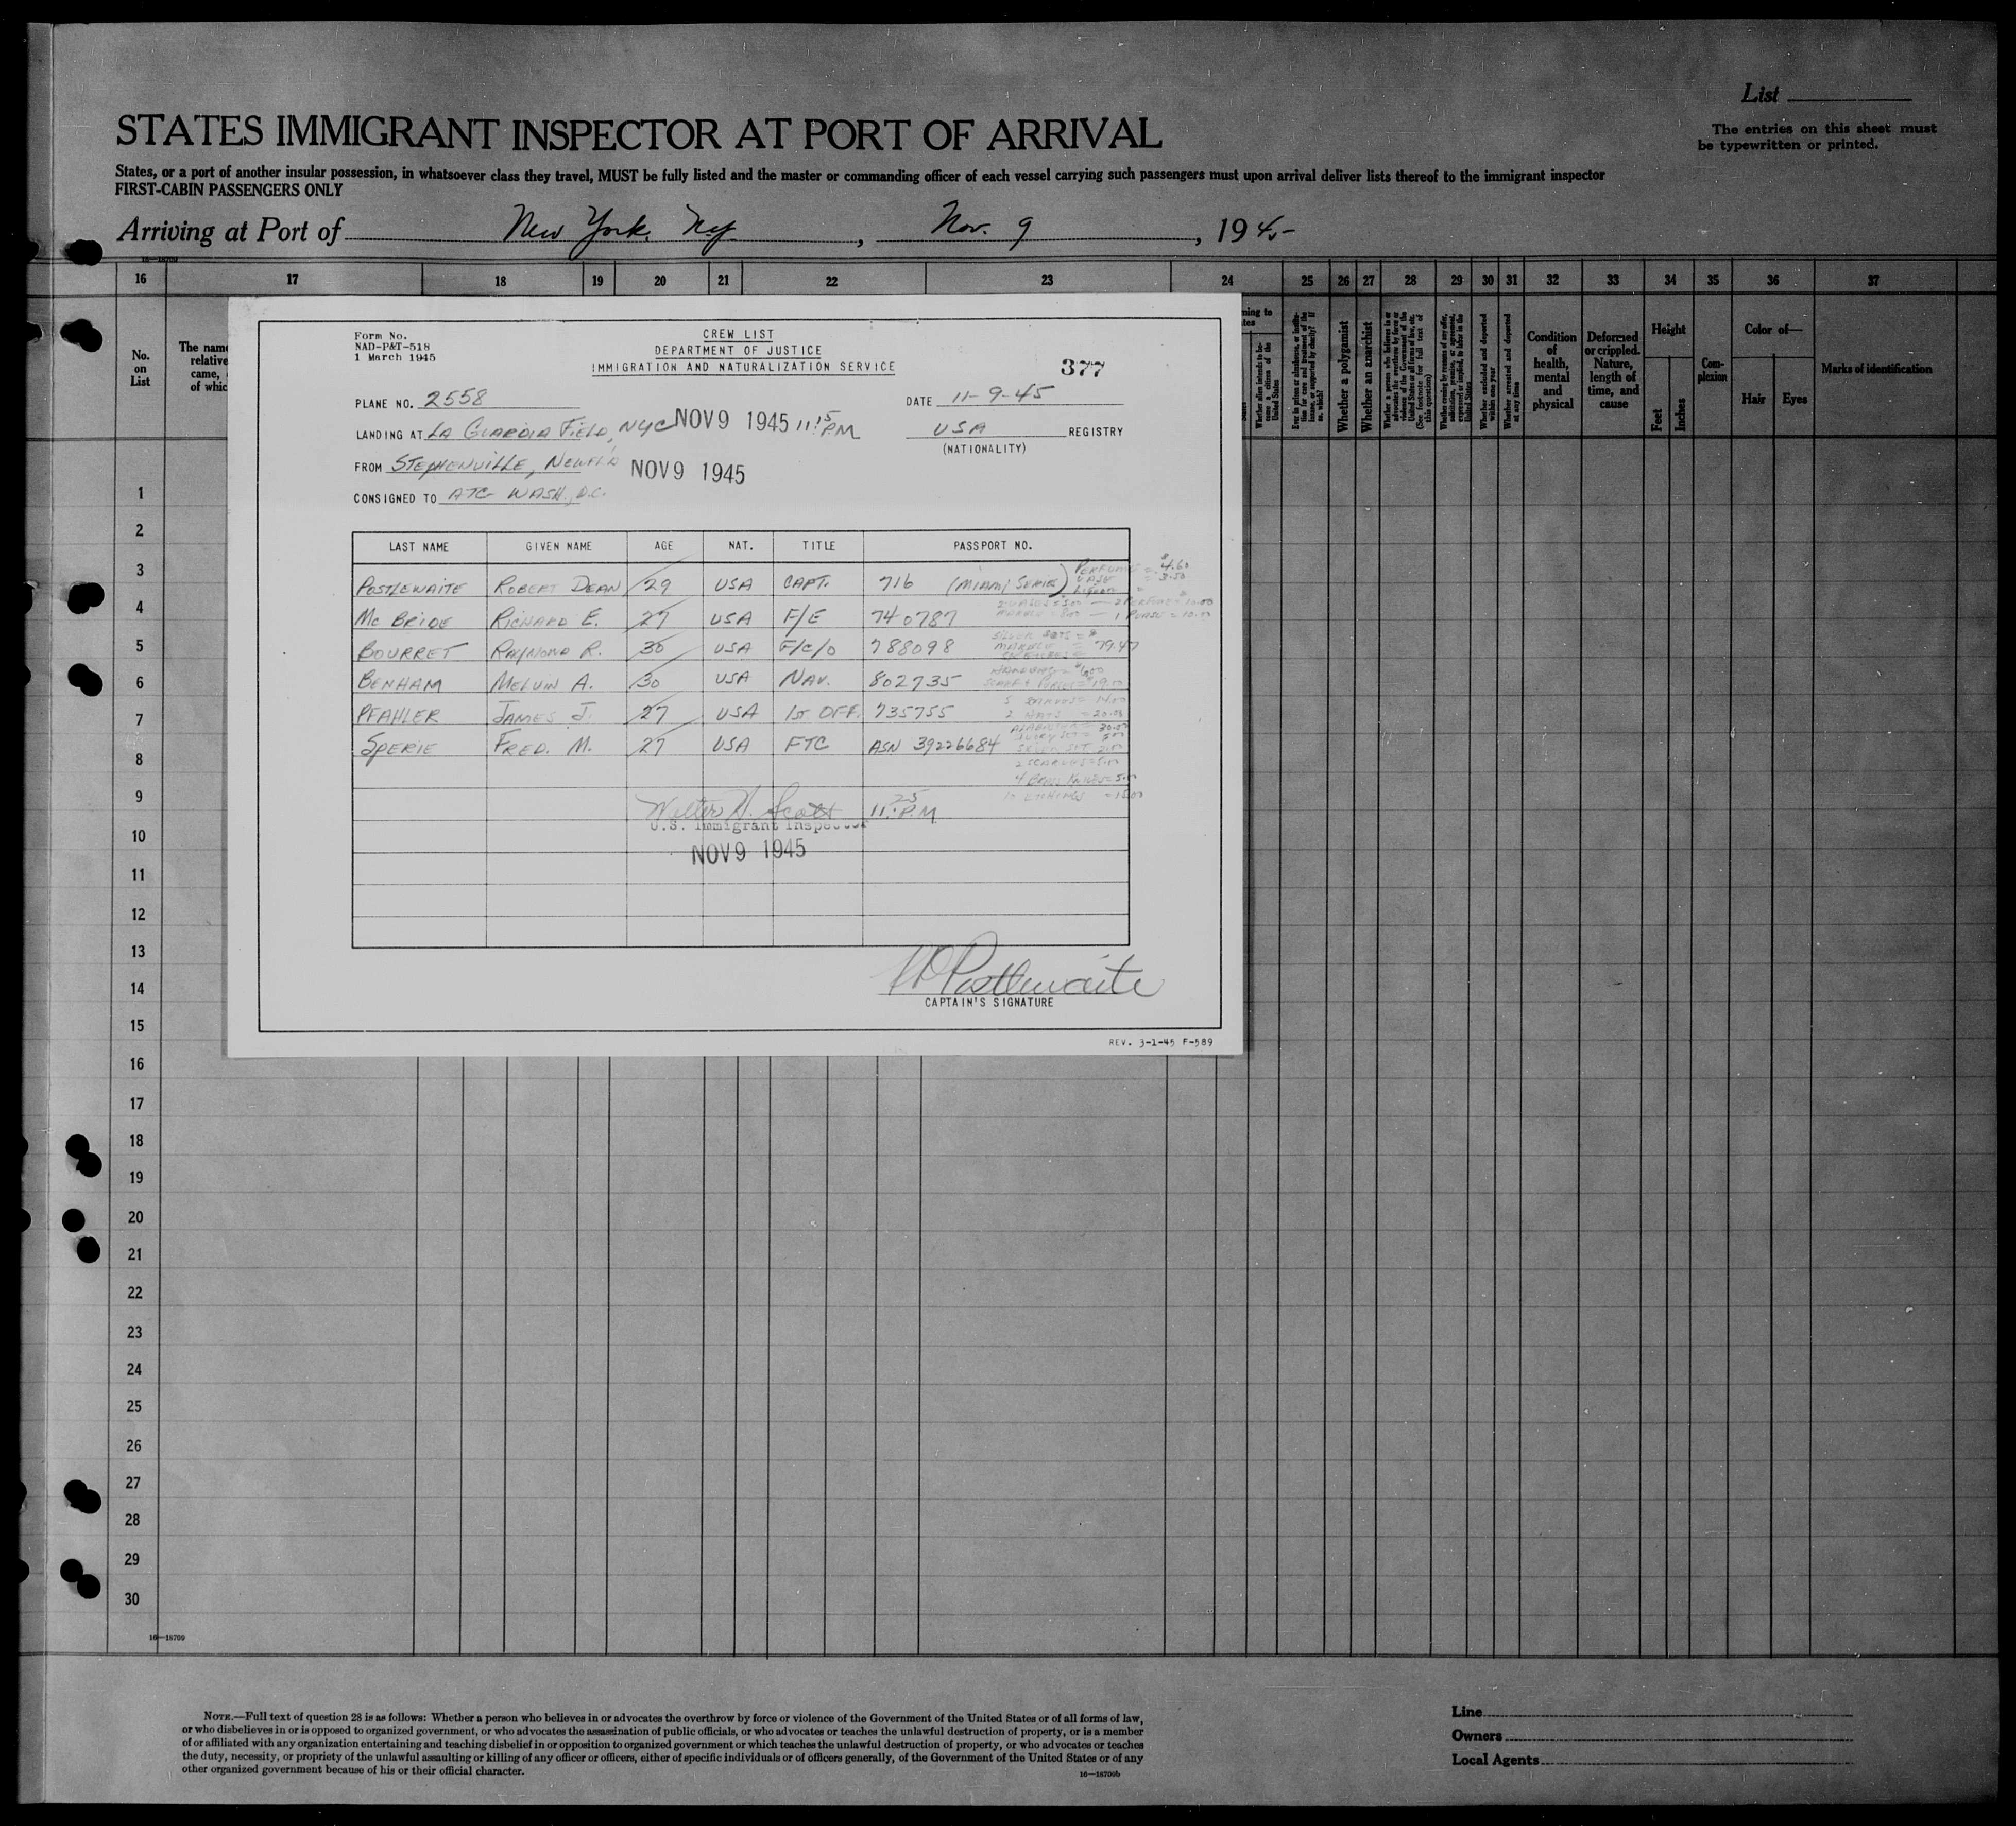 List
The entries on this sheet must
be typewritten or printed.
STATES IMMIGRANT INSPECTOR AT PORT OF ARRIVAL
States, or a port of another insular possession, in whatsoever class they travel, MUST be fully listed and the master or commanding officer of each vessel carrying such passengers must upon arrival deliver lists thereof to the immigrant inspector
FIRST-CABIN PASSENGERS ONLY
Arriving at Port of New York, Ny., Nov. 9, 1945
16—18709
16 17 18 19 20 21 22 23 24 25 26 27 28 29 30 31 32 33 34 35 36 37
No.
on
List
The name
relative
came,
of whic
Whether a polygamist
Whether an anarchist
Whether excluded and deported
within one year
Whether arrested and deported
at any time
Condition
of
health,
mental
and
physical
Deformed
or crippled.
Nature,
length of
time, and
cause
Height
Feet
Inches
Com-
plexion
Color of—
Hair
Eyes
Marks of identification
Form No.
NAD-P&T-518
1 March 1945
CREW LIST
DEPARTMENT OF JUSTICE
IMMIGRATION AND NATURALIZATION SERVICE
377
PLANE NO. 2558
DATE 11-9-45
LANDING AT LA GUARDIA FIELD, NYC NOV 9 1945 11:15 PM
USA REGISTRY
(NATIONALITY)
FROM STEPHENVILLE, NEWFLD NOV 9 1945
CONSIGNED TO ATC WASH., D.C.
LAST NAME GIVEN NAME AGE NAT. TITLE PASSPORT NO.
POSTLEWAITE ROBERT DEAN 29 USA CAPT. 716 (MIAMI SERIES) PERFUME = $4.60
VASE = 3.50
Mc BRIDE RICHARD E. 27 USA F/E 740787
2 VASES = 5.00 — 2 PERFUME = 10.00
MARBLE = 8.00 — 1 PURSE = 10.00
BOURRET RAYMOND R. 30 USA F/C/O 788098
79.47
BENHAM MELVIN A. 30 USA NAV. 802735
PFAHLER JAMES J. 27 USA 1ST OFF. 735755
2 HATS = 20.00
SPERIE FRED. M. 27 USA FTC ASN 39226684
2 SCARVES = 5.00
Walter H. Scott 11:25 P.M
U.S. Immigrant Inspector
NOV 9 1945
RD Postlewaite
CAPTAIN'S SIGNATURE
REV. 3-1-45 F-589
1
2
3
4
5
6
7
8
9
10
11
12
13
14
15
16
17
18
19
20
21
22
23
24
25
26
27
28
29
30
16—18709
NOTE.—Full text of question 28 is as follows: Whether a person who believes in or advocates the overthrow by force or violence of the Government of the United States or of all forms of law,
or who disbelieves in or is opposed to organized government, or who advocates the assassination of public officials, or who advocates or teaches the unlawful destruction of property, or is a member
of or affiliated with any organization entertaining and teaching disbelief in or opposition to organized government or which teaches the unlawful destruction of property, or who advocates or teaches
the duty, necessity, or propriety of the unlawful assaulting or killing of any officer or officers, either of specific individuals or of officers generally, of the Government of the United States or of any
other organized government because of his or their official character.
16—18709b
Line
Owners
Local Agents